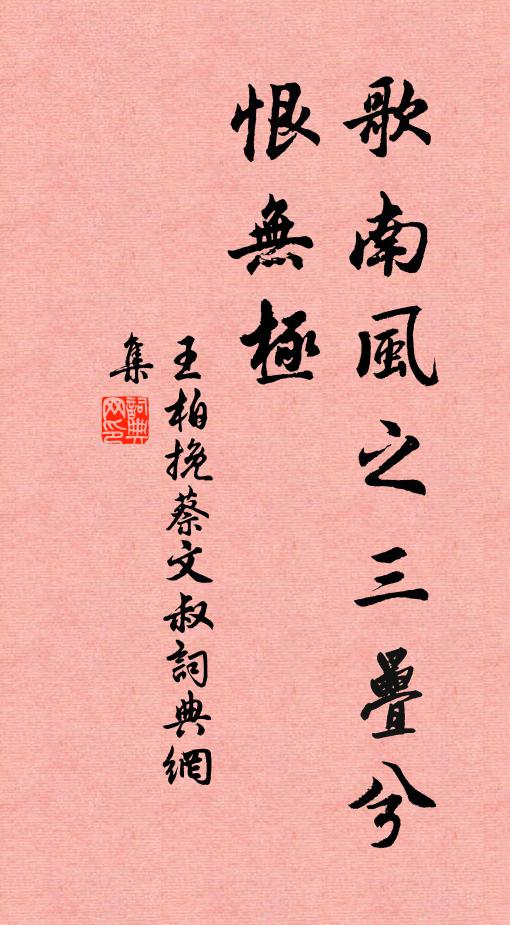 歌南風之三疊兮
恨無極
王柏挽蔡文叔詞典網
集
詞典
网印